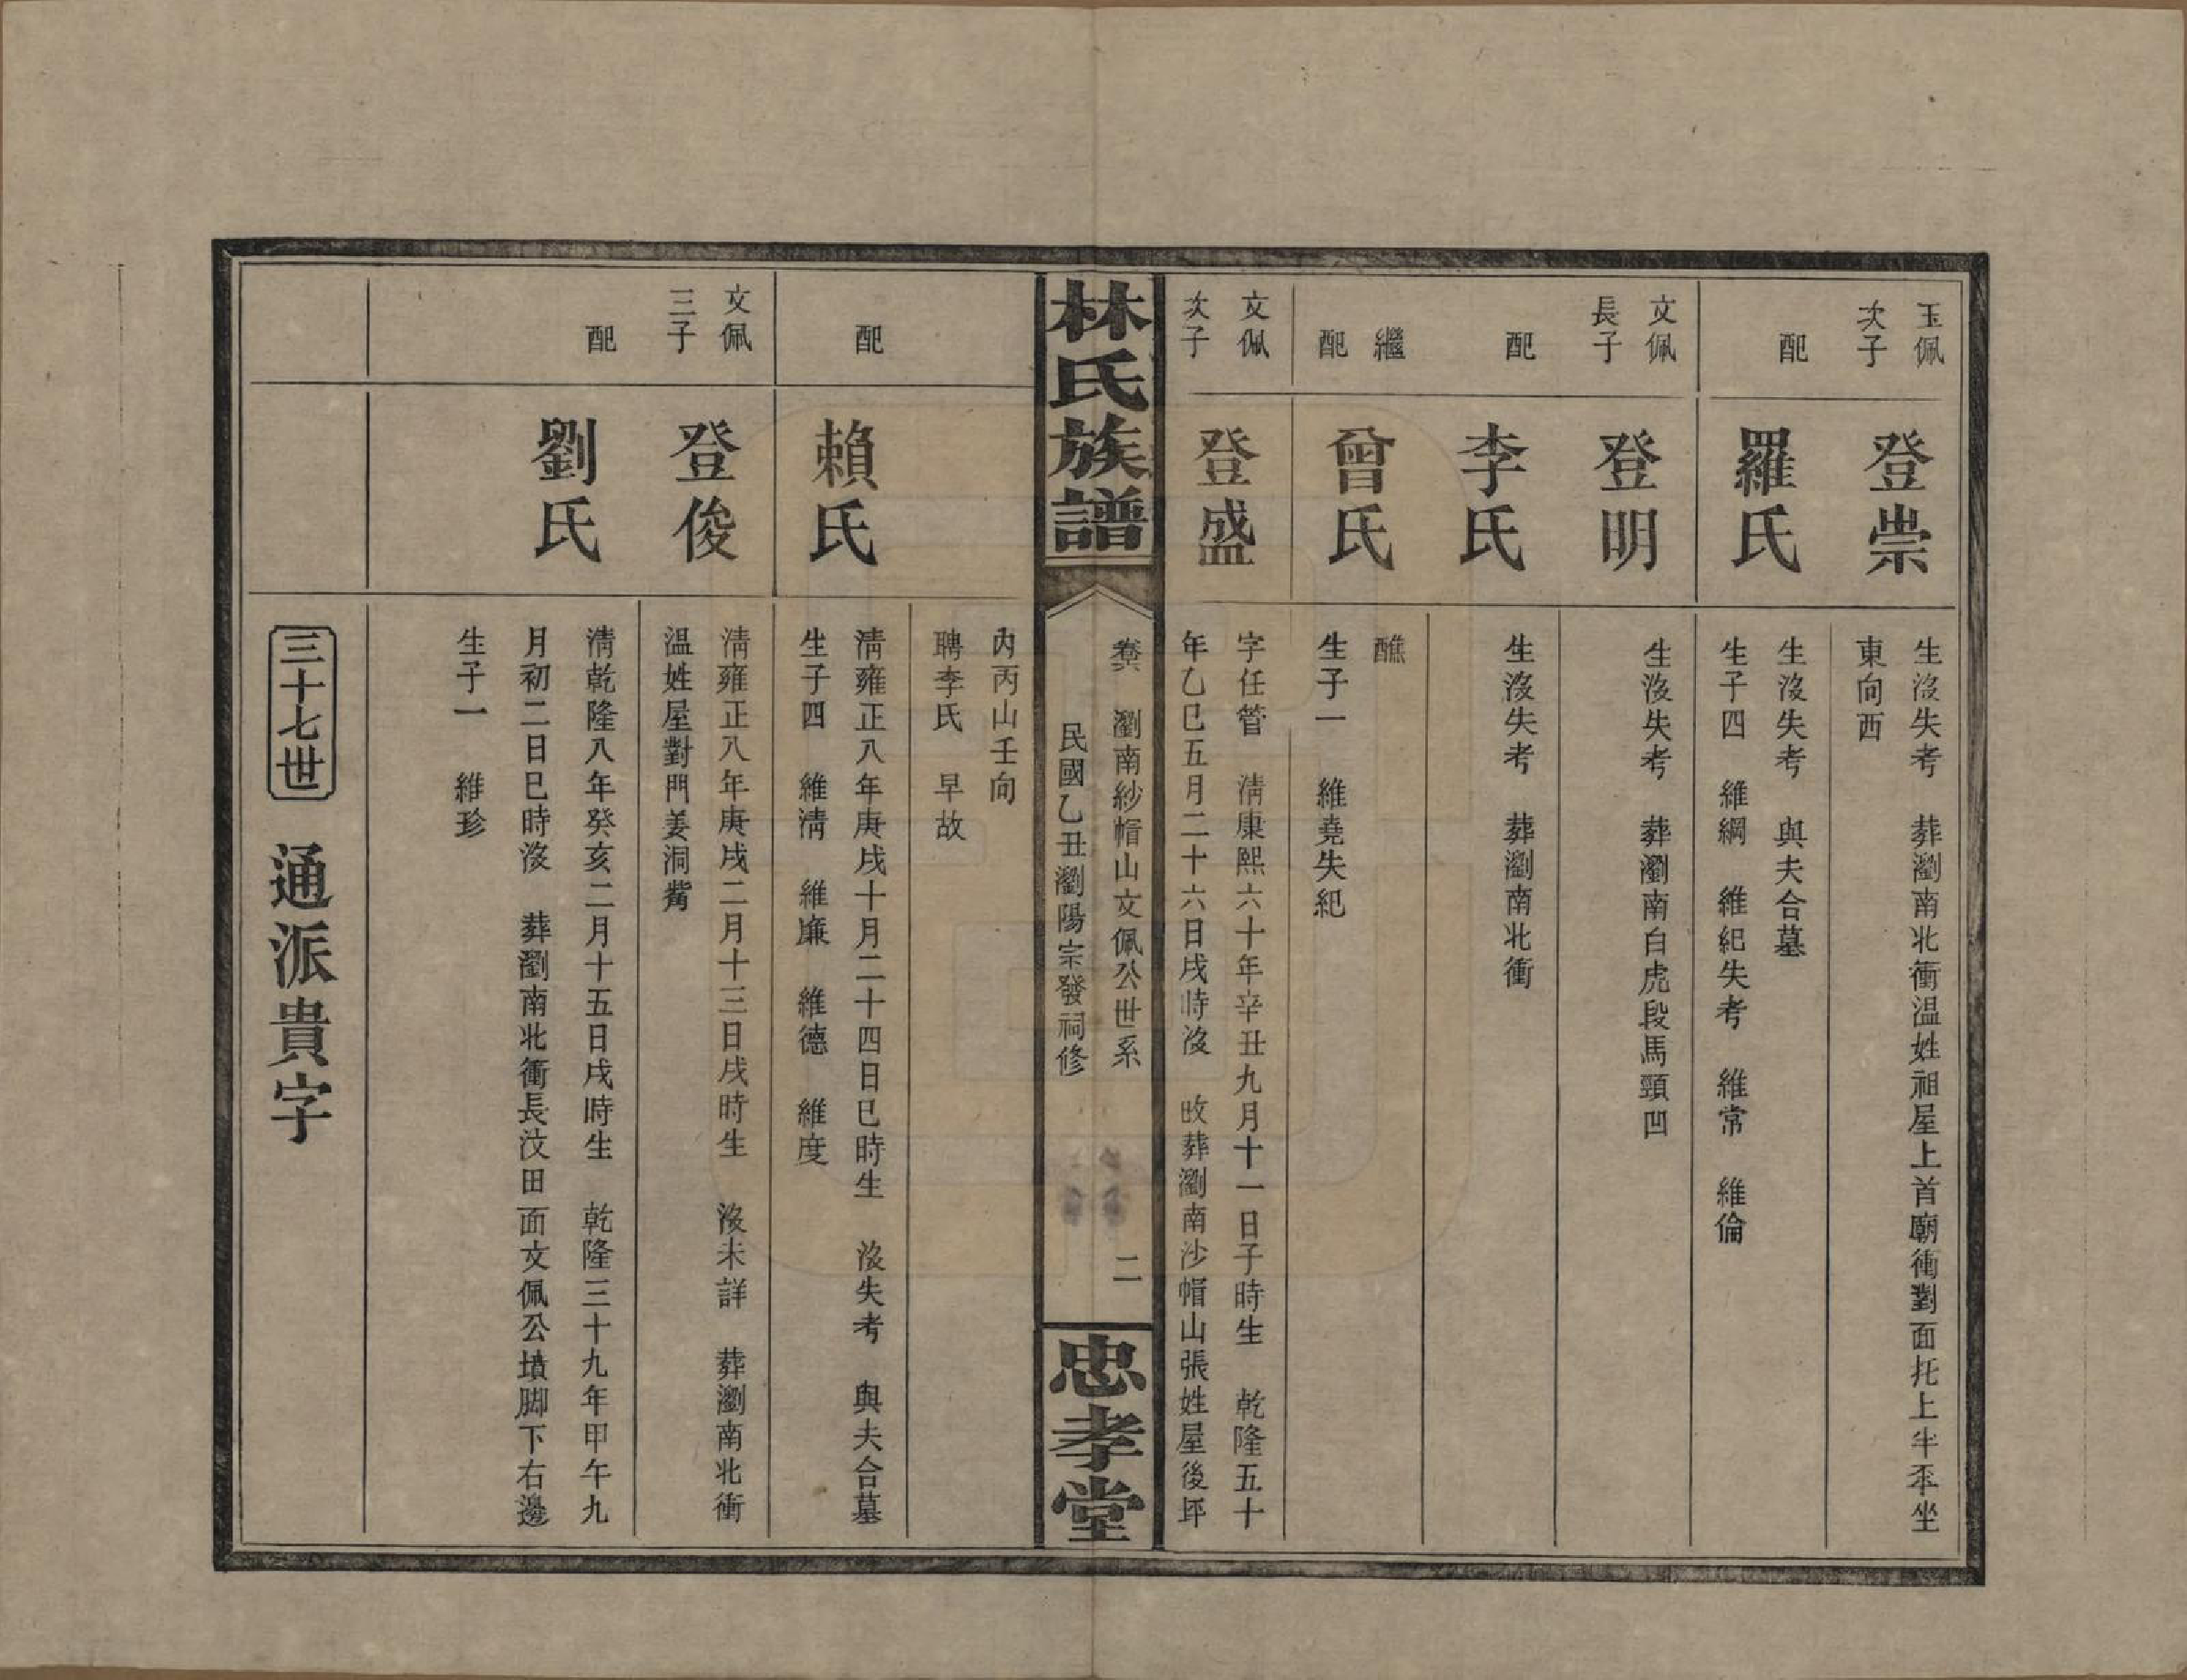 玉佩
次子
登崇
生沒失考　葬瀏南北衝温姓祖屋上首廟衝對面托上牛坐
東向西
配
羅氏
生沒失考　與夫合墓
生子四　維綱　維紀失考　維常　維倫
文佩
長子
登明
生沒失考　葬瀏南白虎段馬頸凹
配
李氏
生沒失考　葬瀏南北衝
繼
配
曾氏
醮
生子一　維堯失紀
文佩
次子
登盛
字任管　淸康熙六十年辛丑九月十一日子時生　乾隆五十
年乙巳五月二十六日戌時沒　改葬瀏南沙帽山張姓屋後坪
林氏族譜
卷六　瀏南紗帽山文佩公世系　二
民國乙丑瀏陽宗發祠修
忠孝堂
內丙山壬向
聘李氏　早故
配
賴氏
淸雍正八年庚戌十月二十四日巳時生　沒失考　與夫合墓
生子四　維淸　維廉　維德　維度
文佩
三子
登俊
淸雍正八年庚戌二月十三日戌時生　沒未詳　葬瀏南北衝
温姓屋對門姜洞觜
配
劉氏
淸乾隆八年癸亥二月十五日戌時生　乾隆三十九年甲午九
月初二日巳時沒　葬瀏南北衝長汶田面文佩公墳脚下右邊
生子一　維珍
三十七世　通派貴字